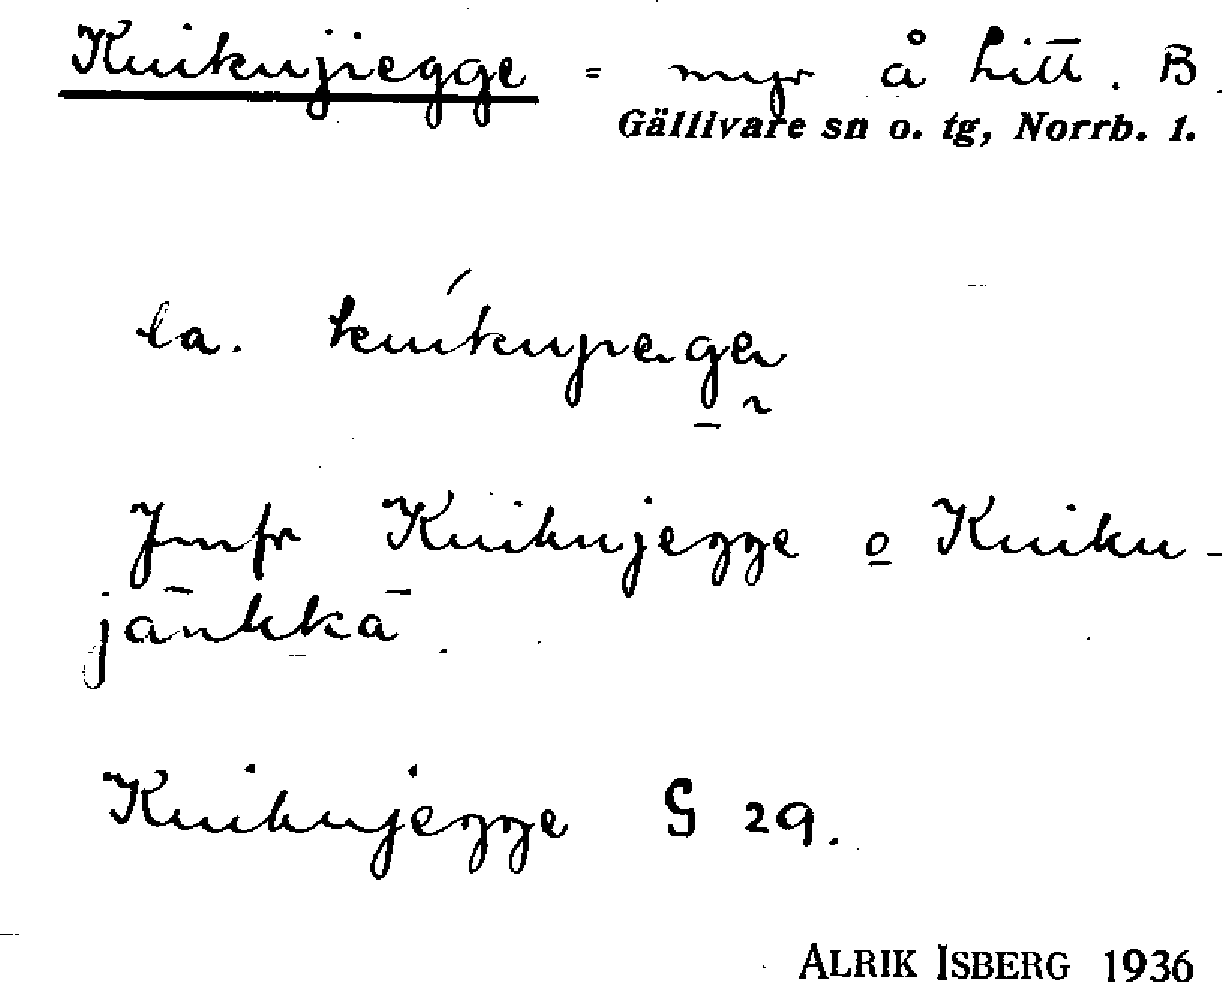 Kuikujiegge = myr å Litt. B.
Gällivare sn o. tg, Norrb. 1.
la.
Jmfr Kuikujegge o Kuiku-
jänkkä.
Kuikujegge G 29.
ALRIK ISBERG 1936